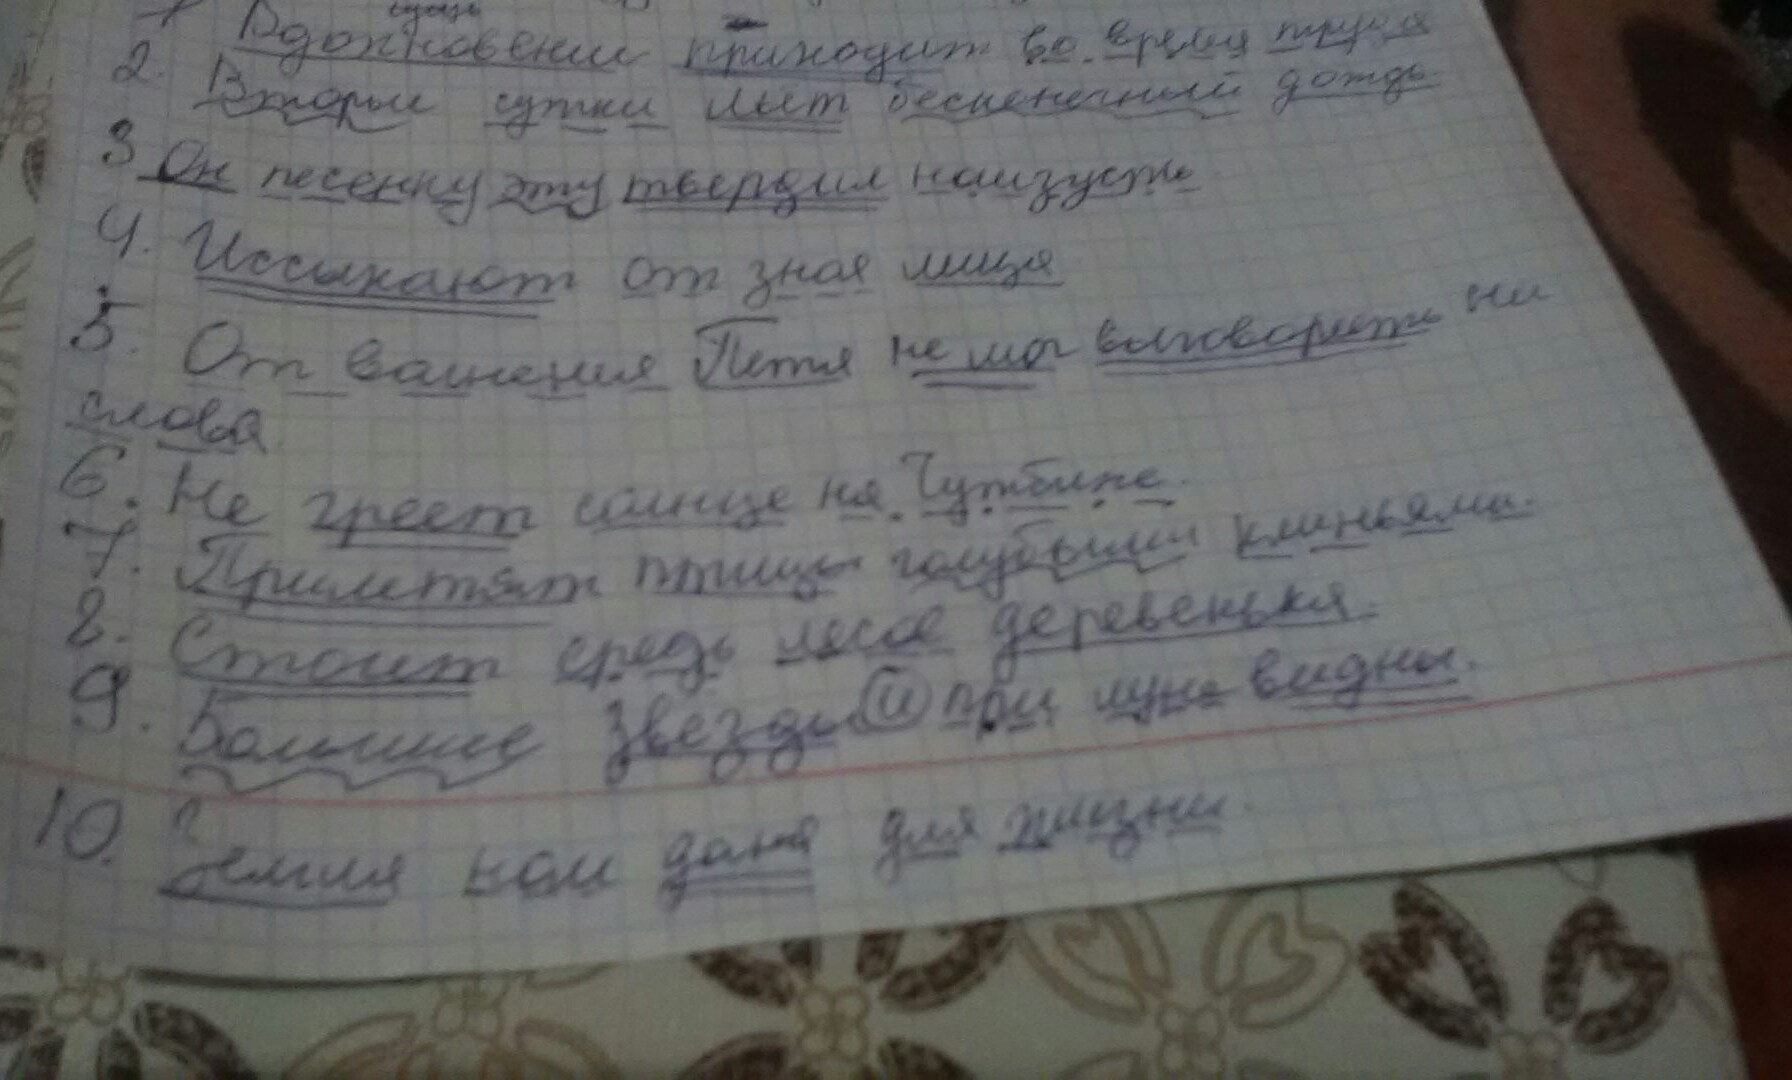 сущ
1 Вдохновении приходит во время труда
2. Вторые сутки льёт бесконечный дождь
3 Он песенку эту твердил наизусть
4. Иссыхают от зноя лица
5. От валнения Петя не мог выговорить ни
слова.
6. Не греет солнце на Чужбине.
7. Прилетят птицы голубыми клиньями.
8. Стоит средь лесов деревенька.
9. Большие звезды и при луне видны.
10. Земля нам дана для жизни.